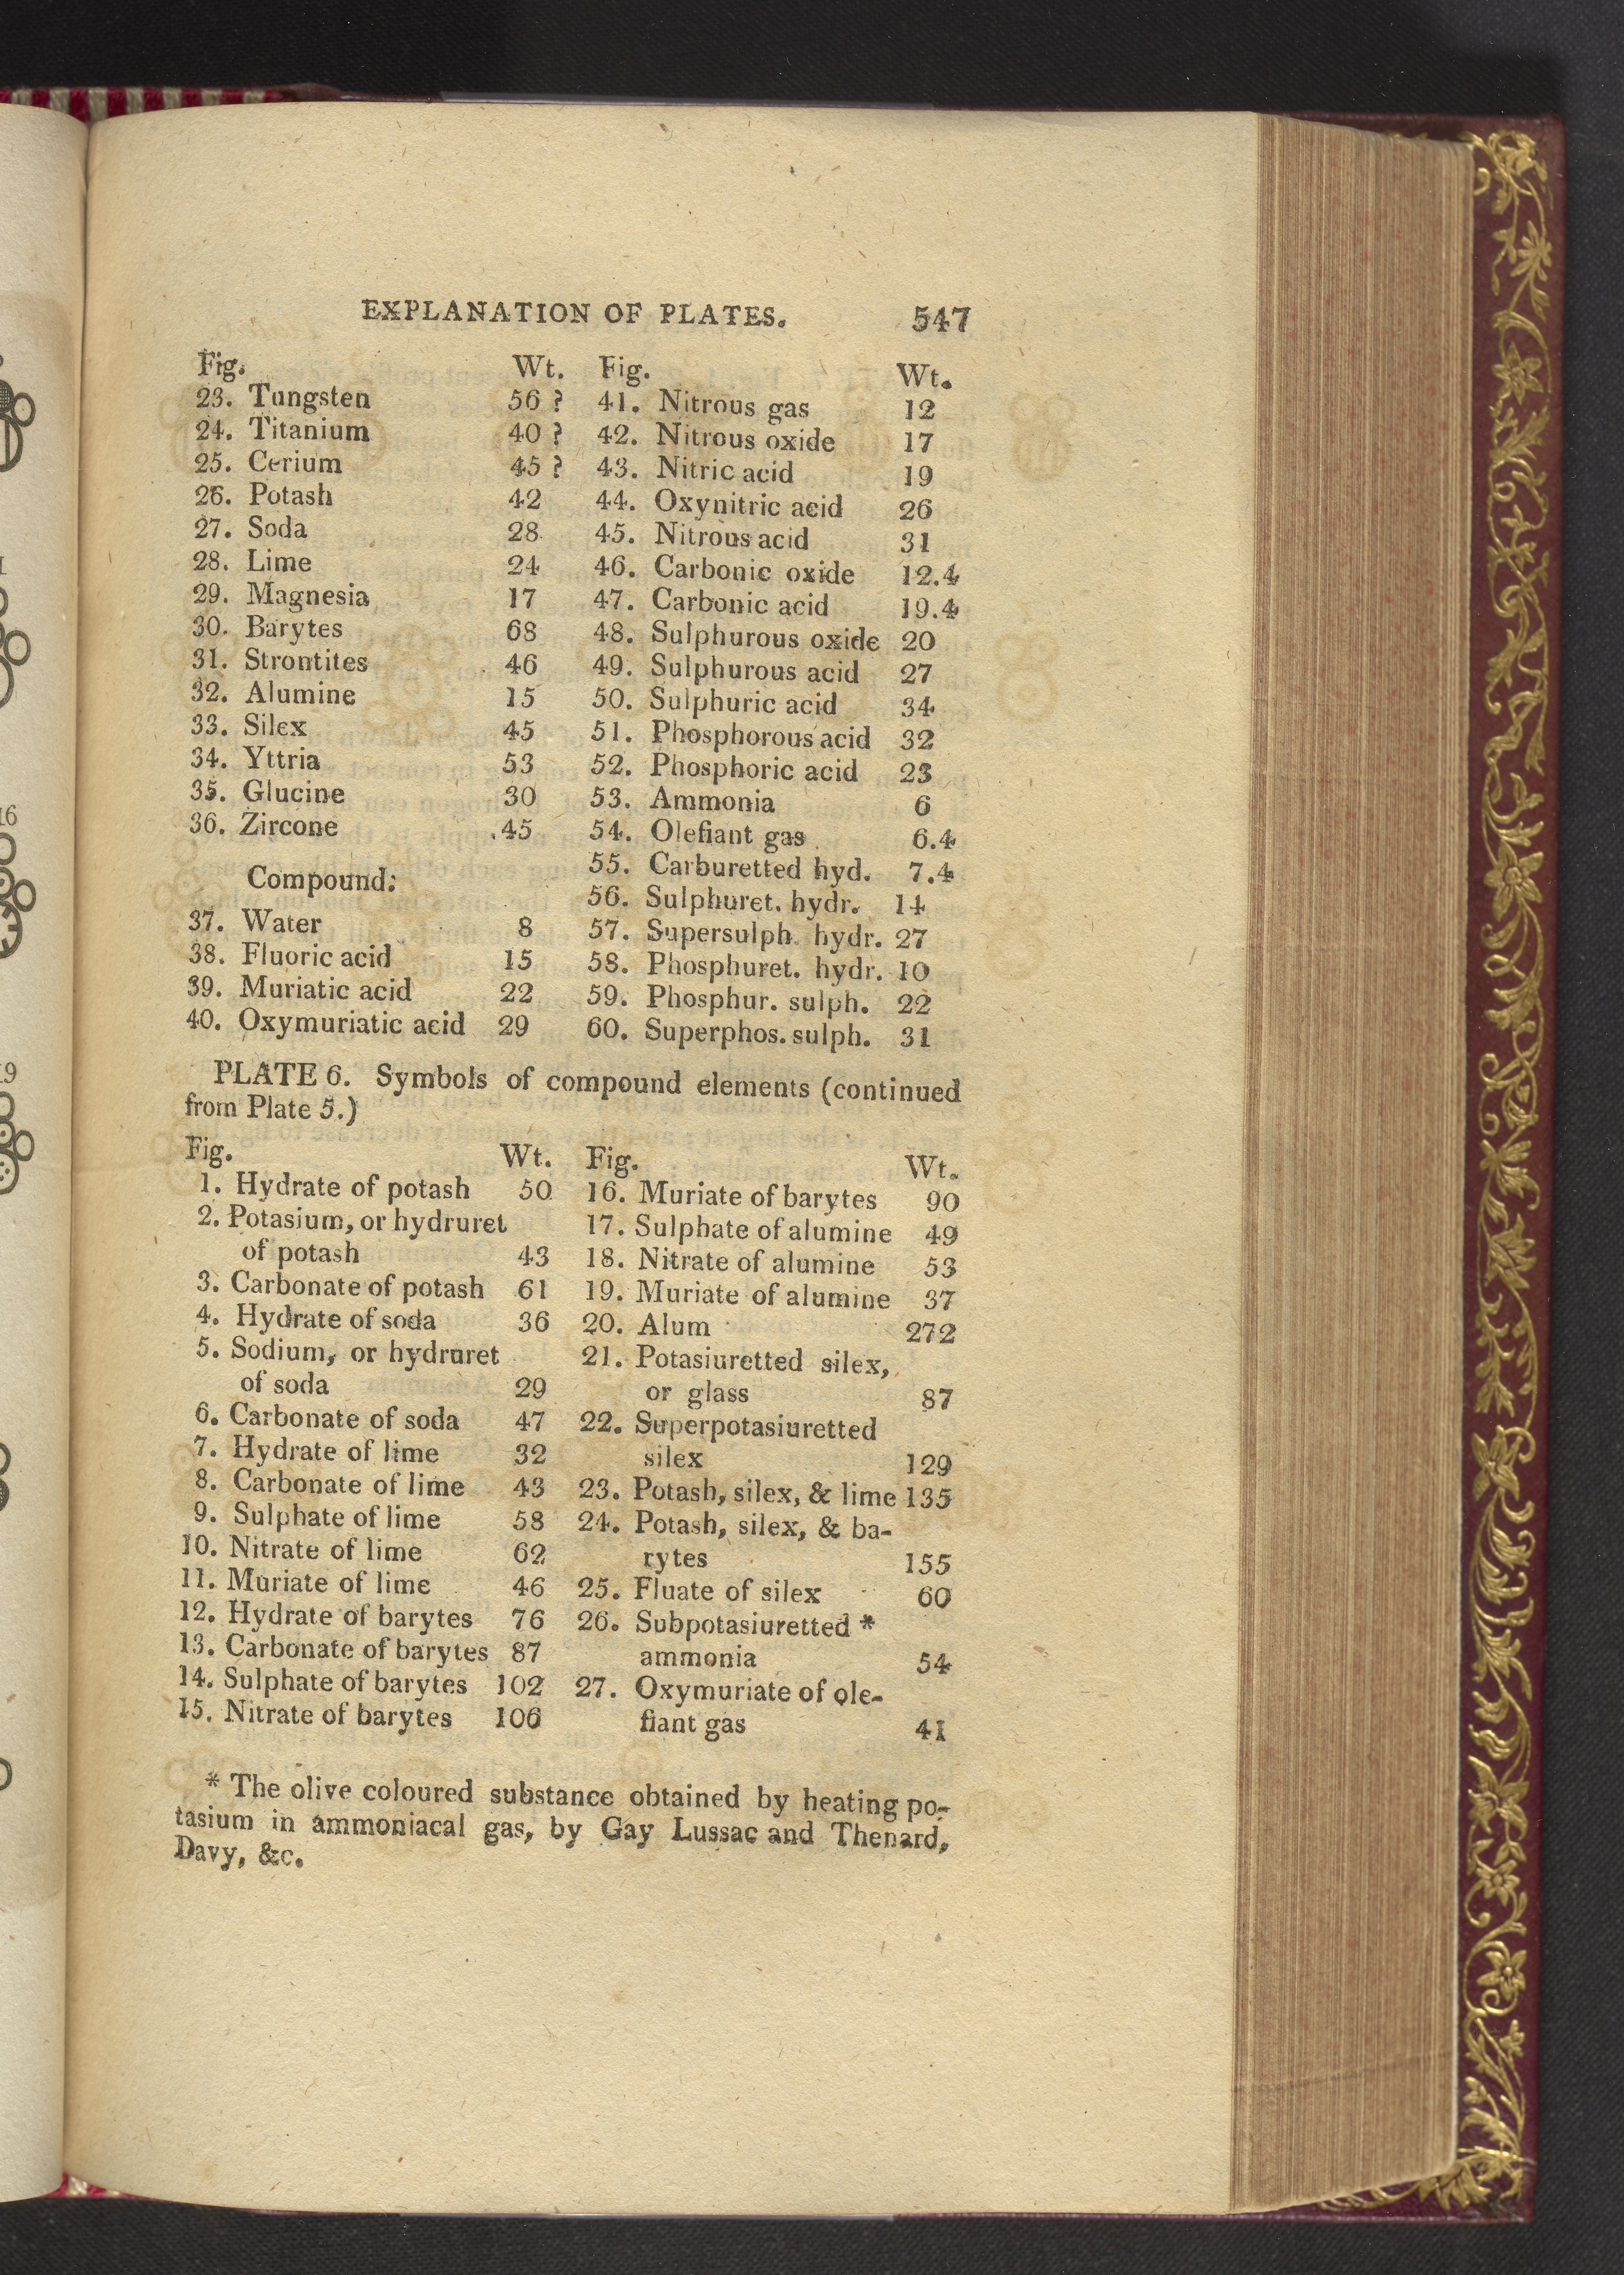 EXPLANATION OF PLATES. 547
Fig. Wt.
23. Tungsten 56 ?
24. Titanium 40 ?
25. Cerium 45 ?
26. Potash 42
27. Soda 28
28. Lime 24
29. Magnesia 17
30. Barytes 68
31. Strontites 46
32. Alumine 15
33. Silex 45
34. Yttria 53
35. Glucine 30
36. Zircone 45
Compound:
37. Water 8
38. Fluoric acid 15
39. Muriatic acid 22
40. Oxymuriatic acid 29
Fig. Wt.
41. Nitrous gas 12
42. Nitrous oxide 17
43. Nitric acid 19
44. Oxynitric acid 26
45. Nitrous acid 31
46. Carbonic oxide 12.4
47. Carbonic acid 19.4
48. Sulphurous oxide 20
49. Sulphurous acid 27
50. Sulphuric acid 34
51. Phosphorous acid 32
52. Phosphoric acid 23
53. Ammonia 6
54. Olefiant gas 6.4
55. Carburetted hyd. 7.4
56. Sulphuret. hydr. 14
57. Supersulph. hydr. 27
58. Phosphuret. hydr. 10
59. Phosphur. sulph. 22
60. Superphos. sulph. 31
PLATE 6. Symbols of compound elements (continued
from Plate 5.)
Fig. Wt.
1. Hydrate of potash 50
2. Potasium, or hydruret
of potash 43
3. Carbonate of potash 61
4. Hydrate of soda 36
5. Sodium, or hydruret
of soda 29
6. Carbonate of soda 47
7. Hydrate of lime 32
8. Carbonate of lime 43
9. Sulphate of lime 58
10. Nitrate of lime 62
11. Muriate of lime 46
12. Hydrate of barytes 76
13. Carbonate of barytes 87
14. Sulphate of barytes 102
15. Nitrate of barytes 106
Fig. Wt.
16. Muriate of barytes 90
17. Sulphate of alumine 49
18. Nitrate of alumine 53
19. Muriate of alumine 37
20. Alum 272
21. Potasiuretted silex,
or glass 87
22. Superpotasiuretted
silex 129
23. Potash, silex, & lime 135
24. Potash, silex, & ba-
rytes 155
25. Fluate of silex 60
26. Subpotasiuretted *
ammonia 54
27. Oxymuriate of ole-
fiant gas 41
* The olive coloured substance obtained by heating po-
tasium in ammoniacal gas, by Gay Lussac and Thenard,
Davy, &c.